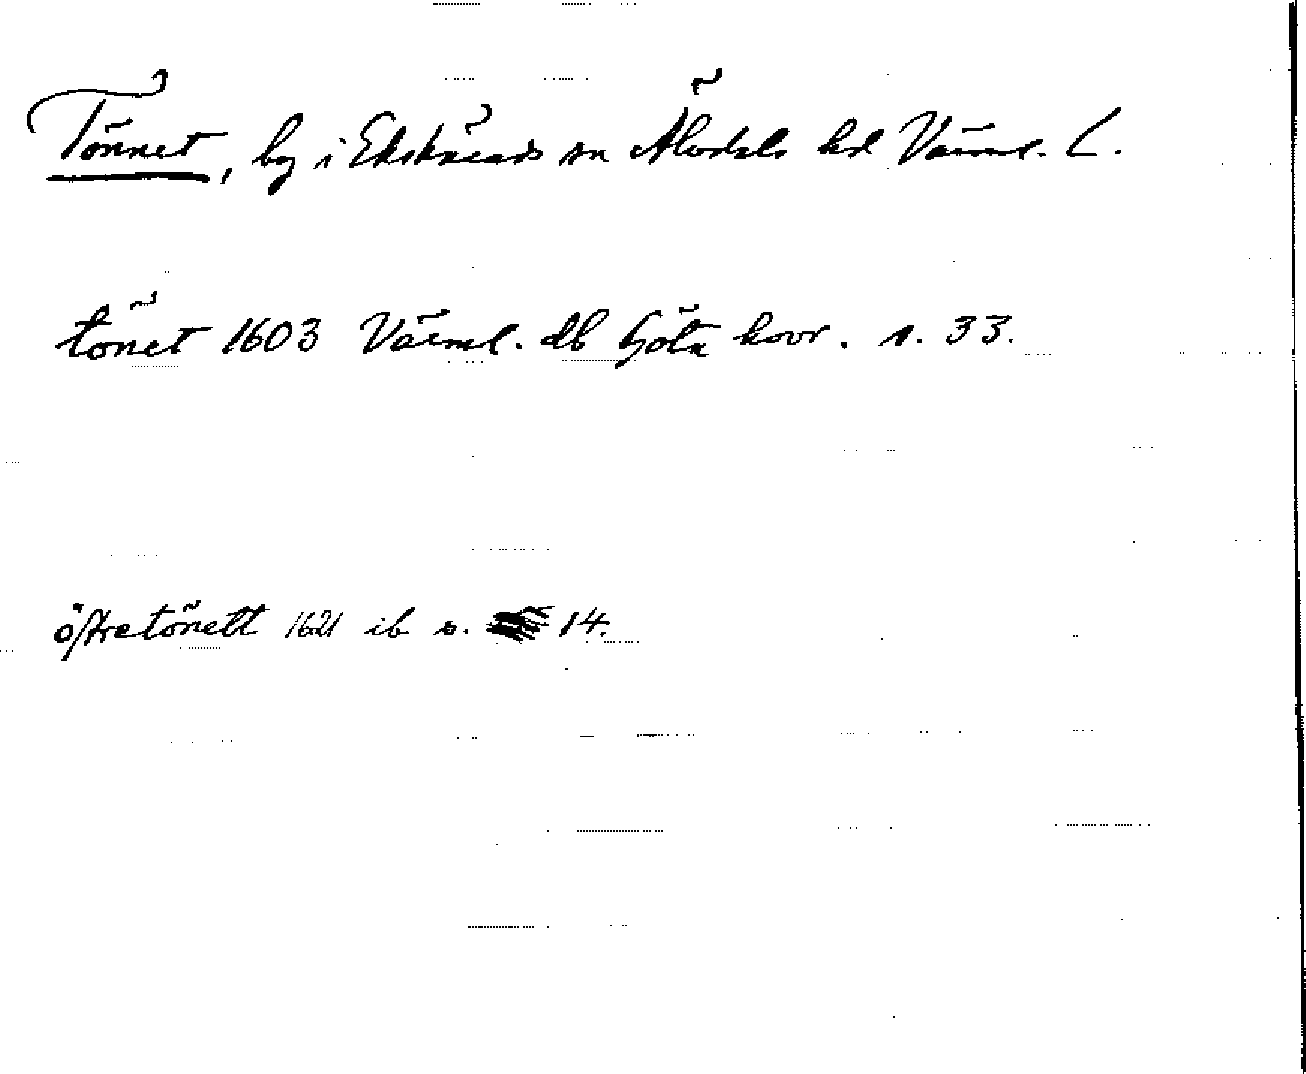 Tönnet, by i Ekshärads sn Älvdals hd Värml. L.
tönet 1603 Värml. db Göta hovr. s. 33.
öftretönett 1621 ib s. 14.